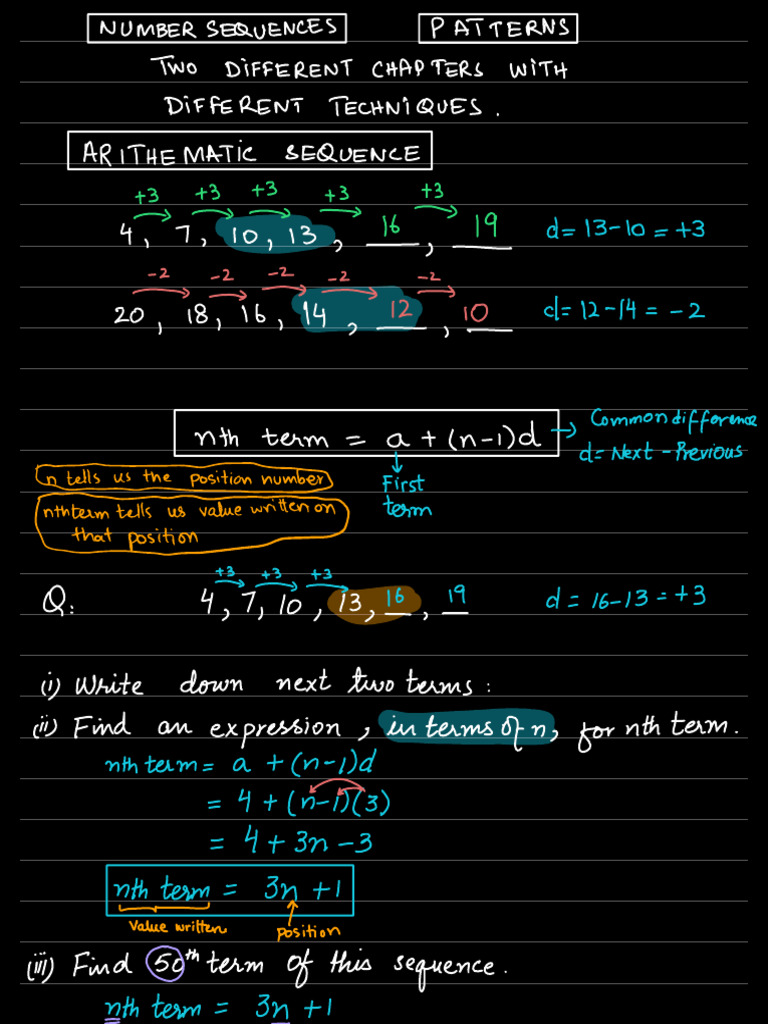 NUMBER SEQUENCES PATTERNS
TWO DIFFERENT CHAPTERS WITH
DIFFERENT TECHNIQUES.
ARITHEMATIC SEQUENCE
+3 +3 +3 +3 +3
4, 7, 10, 13, 16, 19 d= 13-10 = +3
-2 -2 -2 -2 -2
20, 18, 16, 14, 12, 10 d= 12-14 = -2
nth term = a + (n-1)d → Common difference
d= Next - Previous
n tells us the position number
First
term
nth term tells us value written on
that position
+3 +3 +3
Q: 4, 7, 10, 13, 16, 19 d = 16-13 = +3
(i) Write down next two terms:
(ii) Find an expression, in terms of n, for nth term.
nth term = a + (n-1)d
= 4 + (n-1)(3)
= 4 + 3n - 3
nth term = 3n + 1
Value written position
(iii) Find 50th term of this sequence.
nth term = 3n + 1